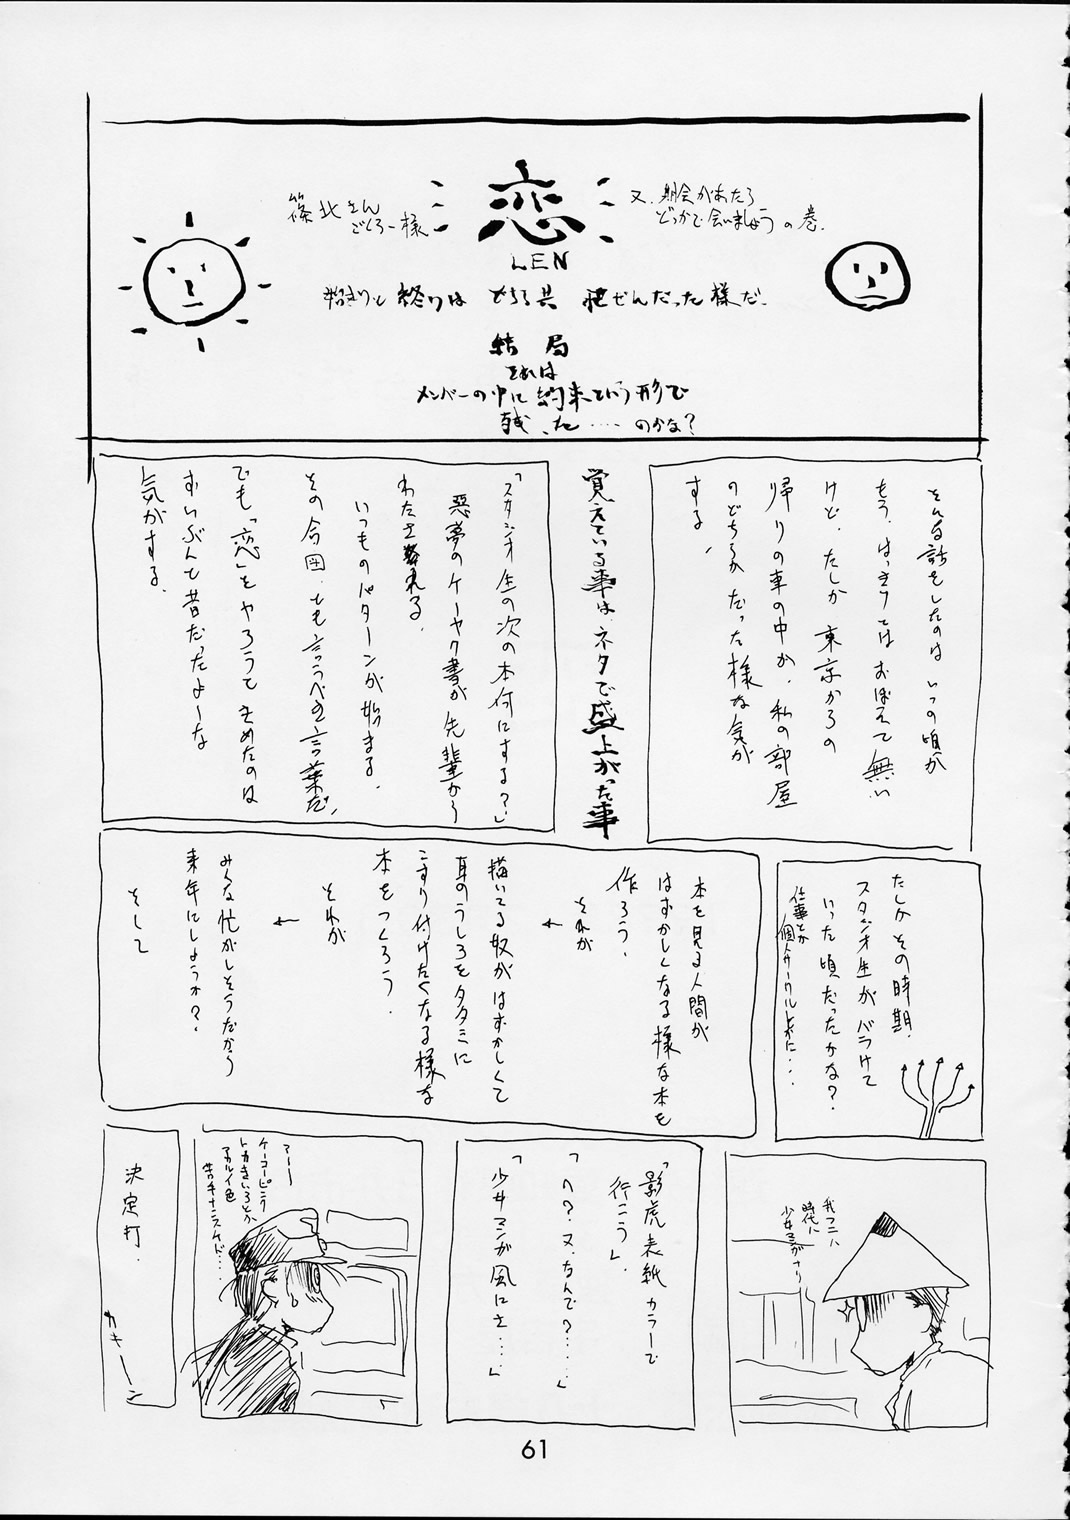 恋
LEN
篠北さん
ごくろー様
又、機会があたら
どっかで会いましょうの巻.
始まりと終りはどちらも突ぜんだった様だ.
結局
それは
メンバーの中に約束という形で
残った……のかな?
そんな話をしたのはいつの頃か
もう、はっきりとはおぼえて無い
けど、たしか東京からの
帰りの車の中か、私の部屋
のどちらかだった様な気が
する。
覚えている事は、ネタで盛上がった事
「スタジオ生の次の本何にする?」
悪夢のケーヤク書が先輩から
わたされる.
いつものパターンが始まる.
その合図とも言うべき言葉だ.
でも「恋」をやろうてきめたのは
ずいぶんと昔だったよーな
気がする.
たしかその時期.
スタジオ生がバラけて
いった頃だったかな?
仕事とか
個人サークルとかに…
本を見る人間が
はずかしくなる様な本を
作ろう.
それが
←
描いてる奴がはずかしくて
耳のうしろをタタミに
こすり付けたくなる様な
本をつくろう.
それが
←
みんな忙がしそうだから
来年にしようか?
そして
時代ハ
少女マンガナリ
「影虎表紙カラーで
行こう」.
「へ?.又.なんで?……」
「少女マンガ風にさ……」
アー
ケーコーピンク
トカきいろとか
アカルイ色
苦手ナンスケド…
決定打.
カキーーン
61